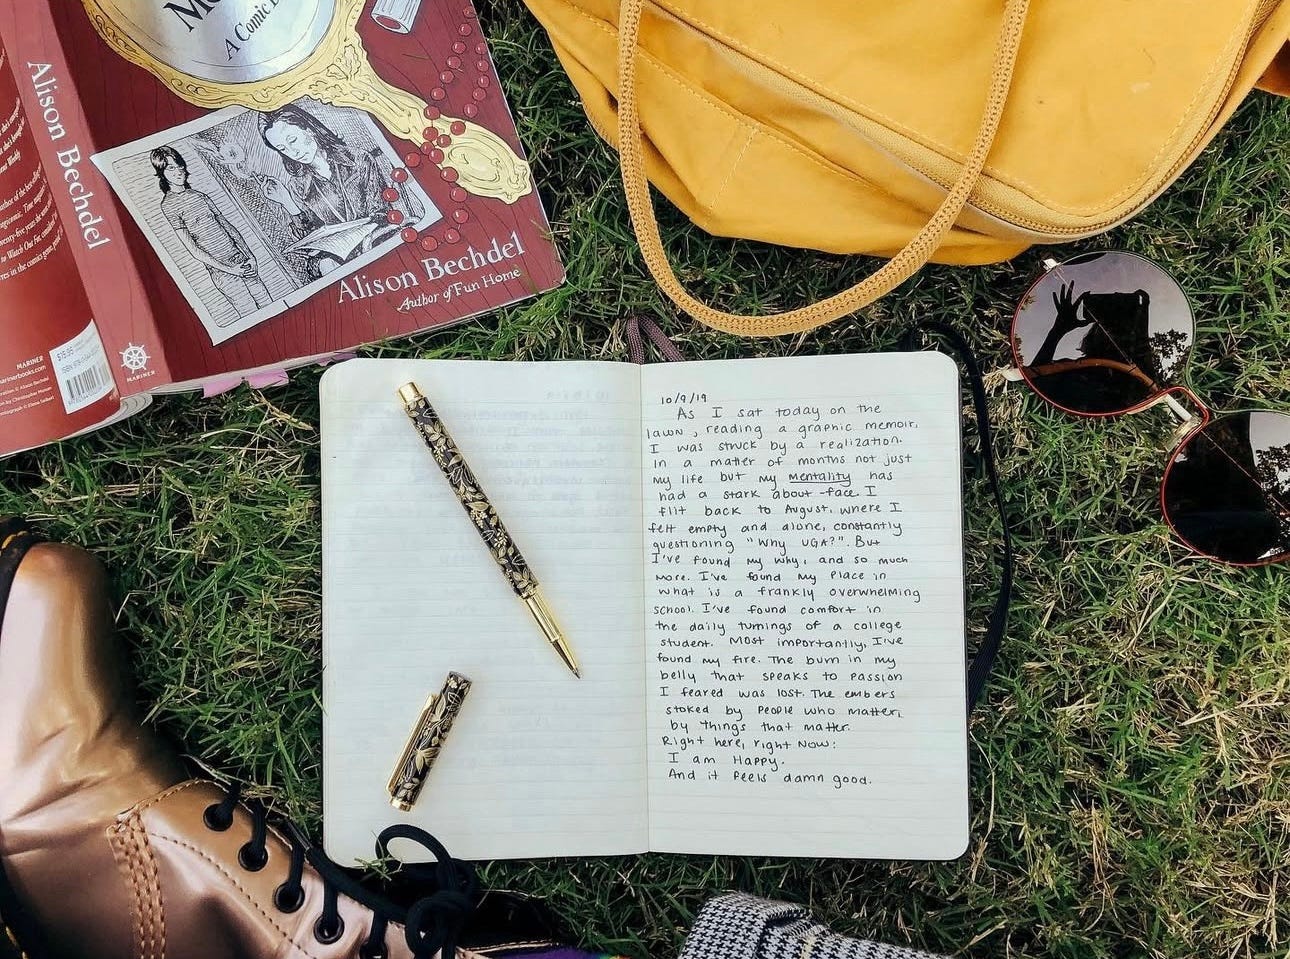 A Comic
Alison Bechdel
Alison Bechdel
Author of Fun Home
MARINER
marinerbooks.com
$15.95
MARINER
10/9/19
As I sat today on the
lawn, reading a graphic memoir,
I was struck by a realization.
In a matter of months not just
my life but my mentality has
had a stark about-face. I
flit back to August, where I
felt empty and alone, constantly
questioning "Why UGA?". But
I've found my why, and so much
more. I've found my place in
what is a frankly overwhelming
school. I've found comfort in
the daily turnings of a college
student. Most importantly, I've
found my fire. The burn in my
belly that speaks to passion
I feared was lost. The embers
stoked by people who matter,
by things that matter.
Right here, right now:
I am Happy.
And it feels damn good.